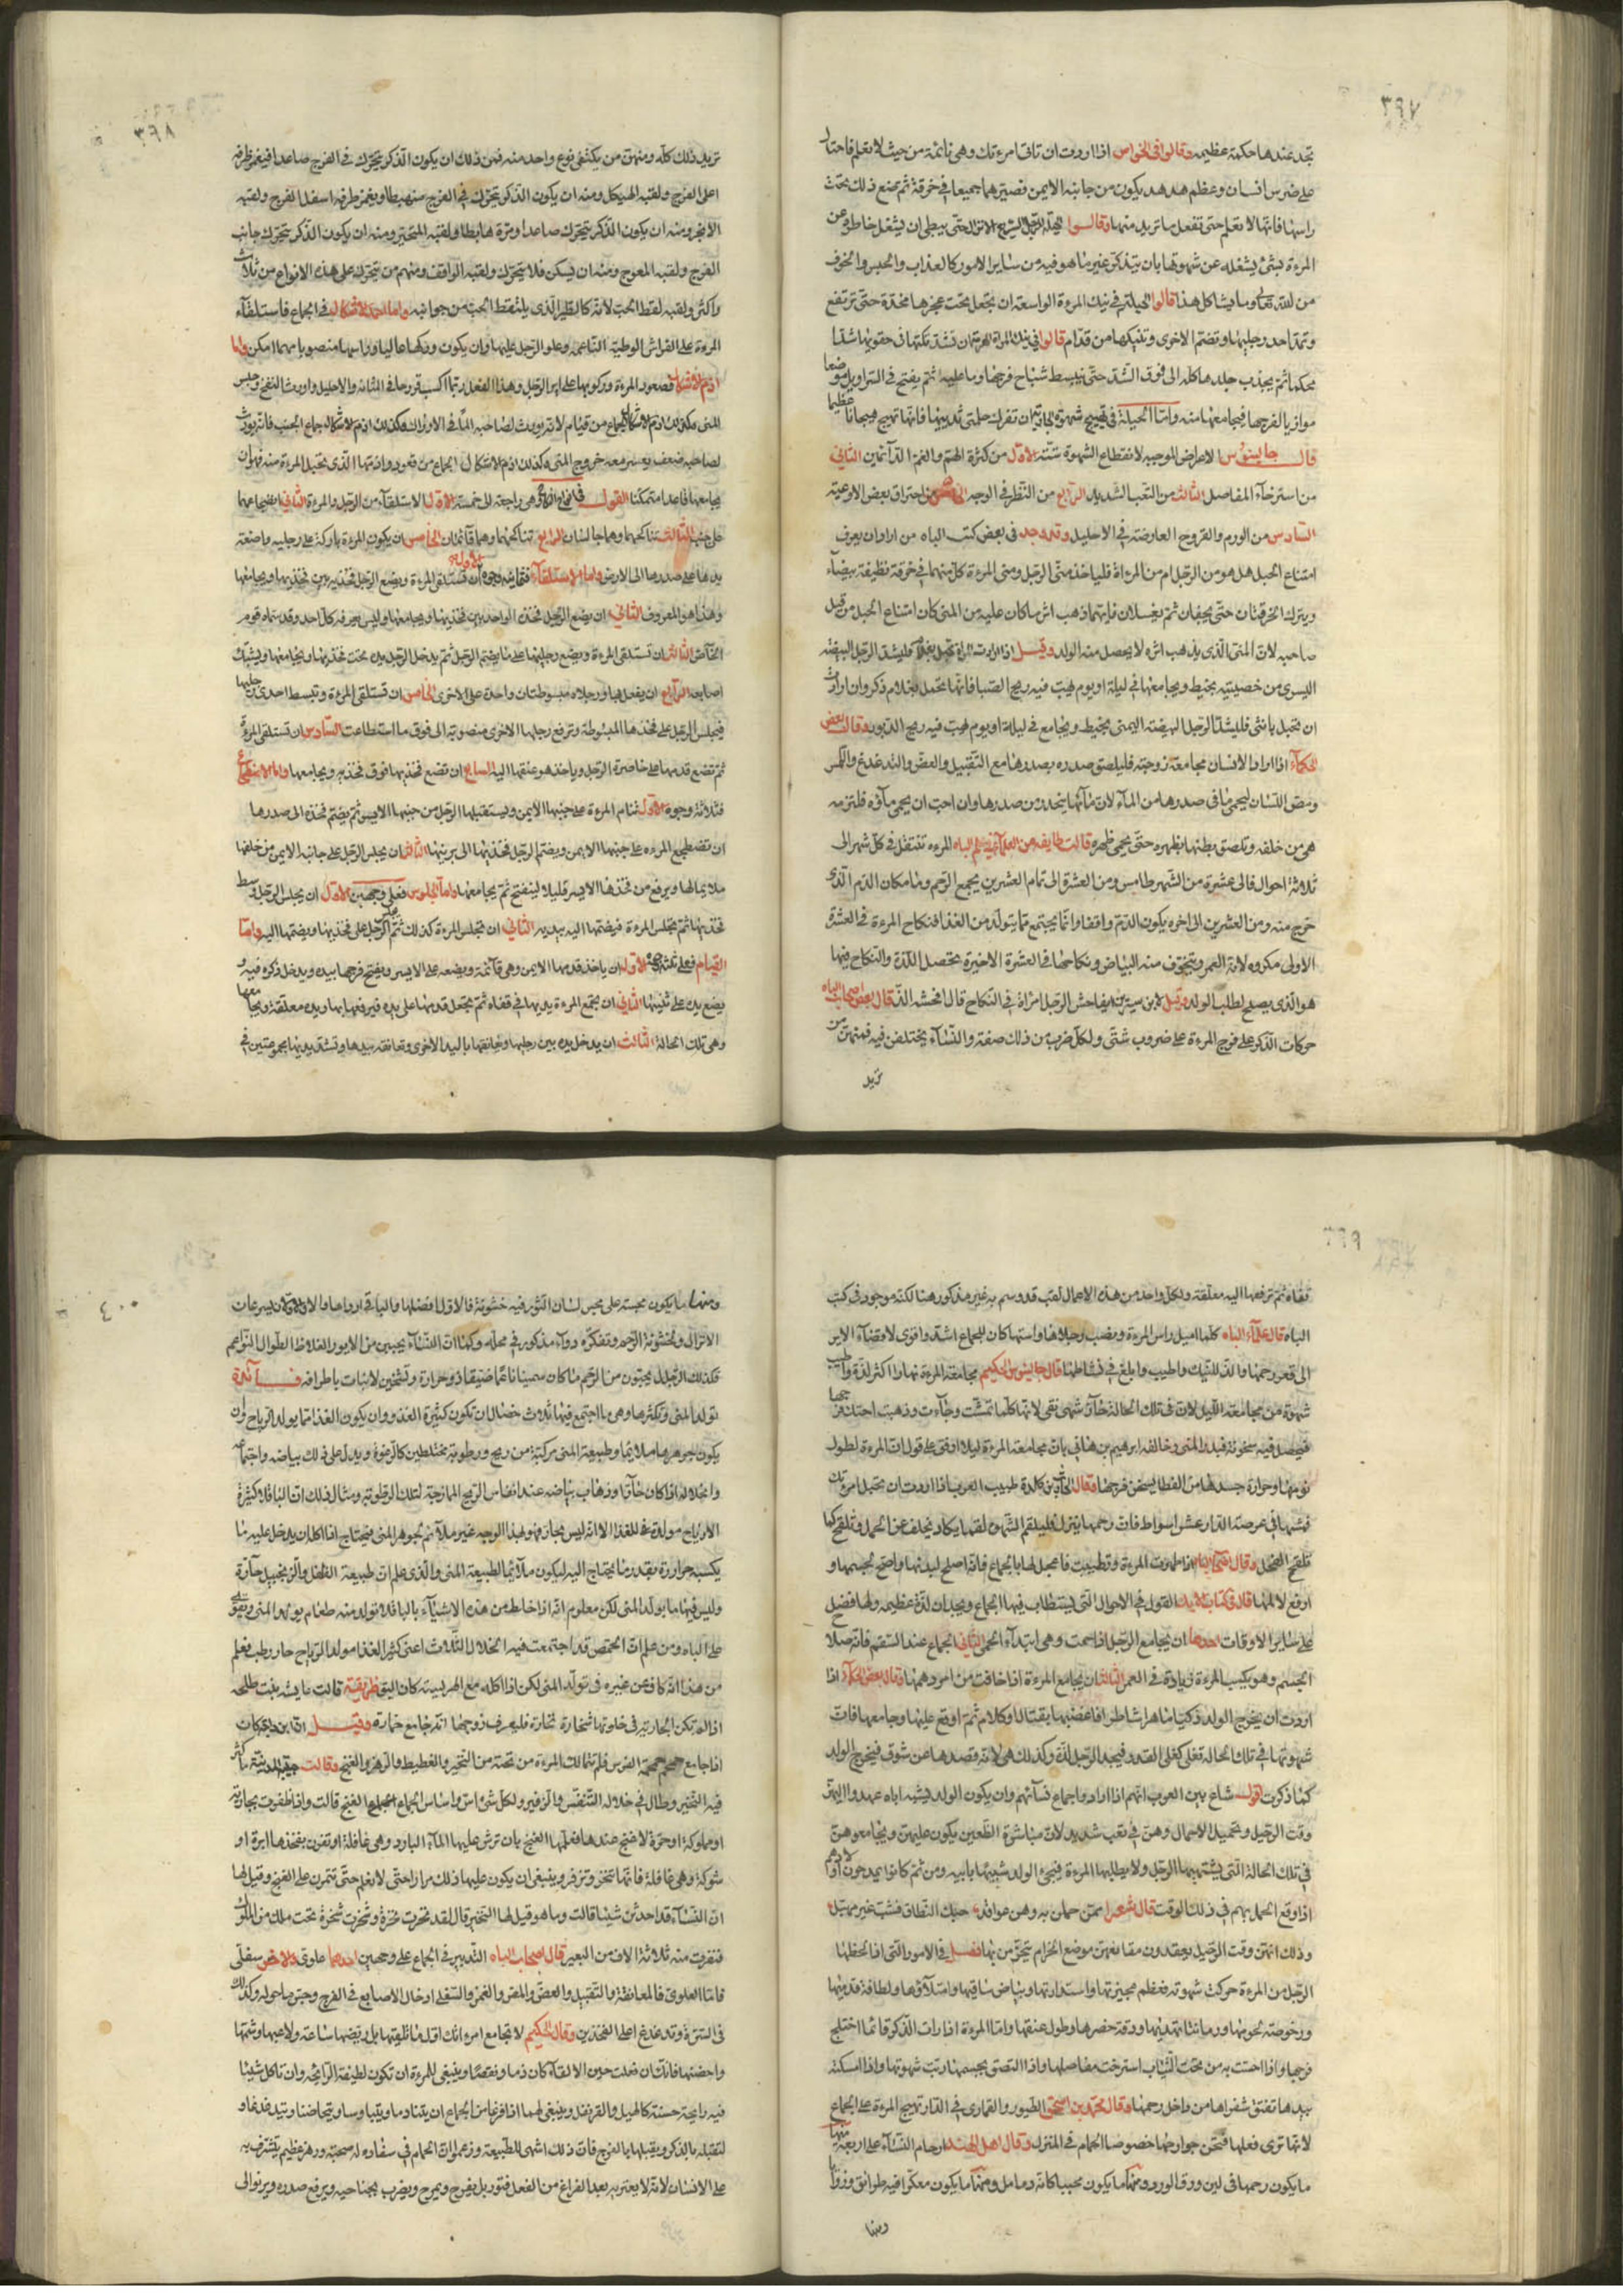 ٣٩٧
تجد عندها حكمة عظيمه وقالوا في الخواص اذا اردت ان تاق امرءتك وهى نائمة من حيث لا تعلم فاحتل
على ضرس انسان وعظم هدهد يكون من جانبه الايمن فصيرهما جميعا في خرقة ثم تضع ذلك تحت
راسها فانها لا تعلم حتى تفعل ما تريد منها وقالوا حتى يبطى ان يشغل خاطره عن
المرءة بشئ يشغله عن شهوتها بان يتذكر غير ما هو فيه من ساير الامور كالعذاب والحبس والخوف
من الله تعالى وما يشاكل هذا قالوا الحيلة في نيك المرءة الواسعة ان يجعل تحت عجزها مخدة حتى ترتفع
وتمد احد رجليها وتضم الاخرى وتنيكها من قدام قالوا في نيك المراة الهرمة ان تشد تكتها في حقويها شدا
محكما ثم يجذب جلدها كله الى فوق الشد حتى ينبسط شباح فرجها وما عليه ثم يفتح في السراويل موضعا
موازيا لفرجها فيجامعها منه واما الحيلة في تهييج شهوة الجارية ان تفرك حلمتى ثدييها فانها تهيج هيجانا عظيما
قال جالينوس الاعراض الموجبه لانقطاع الشهوة ستة الاول من كثرة الهم والغم الدائمين الثاني
من استرخاء المفاصل الثالث من التعب الشديد الرابع من النظر في الوجه الخامس من احتراق بعض الاوعيه
السادس من الورم والقروح العارضة في الاحليل وقد وجد في بعض كتب الباه من اراد ان يعرف
امتناع الحبل هل هو من الرجل ام من المراة فلياخذ منى الرجل ومنى المرءة كل منهما في خرقة نظيفة بيضاء
ويترك الخرقتان حتى يجفان ثم يغسلان فايهما ذهب اثر ما كان عليه من المنى كان امتناع الحبل من قبل
صاحبه لان المنى الذى يذهب اثره لا يحصل منه الولد وقيل اذا ارادت المراة تحبل بغلام فليشد الرجل البيضه
اليسرى من خصيتيه بخيط ويجامعها في ليلة او يوم تهب فيه ريح الصبا فانها تحمل بغلام ذكر وان ارادت
ان تحبل بانثى فليشد الرجل البيضه اليمنى بخيط ويجامع في ليلة او يوم تهب فيه ريح الدبور وقال بعض
الحكماء اذا اراد الانسان مجامعة زوجته فليلصق صدره بصدرها مع التقبيل والعض والتدغدغ والكس
ومص اللسان ليحمى ما في صدرها من الماء لان ماءها ينحدر من صدرها وان احب ان يحمى ماؤه فلتزمه
هى من خلفه وتلصق بطنها بظهره حتى يحمى ظهره قالت طايفه من العلماء في علم الباه المرءة تنتقل في كل شهر الى
ثلاثة احوال فالى عشرة من الشهر طامس ومن العشرة الى تمام العشرين يجمع الرحم وما مكان الدم الذى
خرج منه ومن العشرين الى اخره يكون الدم واقفا وانما يجتمع مما يتولد من الغذا فنكاح المرءة في العشرة
الاولى مكروه لانه العمر ويتخوف منه البياض ونكاحها في العشرة الاخيرة يحصل اللذة والنكاح فيها
هو الذى يصلح لطلب الولد وقيل لابن سيرين ايفاحش الرجل امراة في النكاح قال افحشه الذ قال بعض اصحاب الباه
حركات الذكر على فرج المرءة على ضروب شتى ولكل ضرب من ذلك صفة والنساء يختلفن فيه فمنهن من
تريد
٣٩٨
تريد ذلك كله ومنهن من يكتفى بنوع واحد منه فمن ذلك ان يكون الذكر يتحرك في الفرج صاعدا فيغمز طرفه
اعلى الفرج ولقبه الهيكل ومنه ان يكون الذكر يتحرك في الفرج منهبطا ويغمز طرفه اسفل الفرج ولقبه
ومنه ان يكون الذكر يتحرك صاعدا ومرة هابطا ولقبه المتحير ومنه ان يكون الذكر يتحرك جانب
الفرج ولقبه المعوج ومنه ان يسكن فلا يتحرك ولقبه الواقف ومنهم من يتحرك على هذه الانواع من ثلاث
واكثر ولقبه لقط الحب لانه كالطير الذى يلتقط الحب من جوانبه واما احمد الاشكال في الجماع فاستلقاء
المرءة على الفراش الوطيه الناعمه وعلو الرجل عليها وان يكون وركها عاليا وراسها منصوبا مهما امكن واما
اذم الاشكال فصعود المرءة وركوبها على اير الرجل وهذا الفعل ربما اكسب قروحا في المثانه والاحليل واورث النفخ وحبس
المنى وكذلك اذم الاشكال الجماع من قيام لانه يورث لصاحبه الما في الاوراك وكذلك اذم الاشكال جماع الجنب فانه يورث
لصاحبه ضعف ويعسر معه خروج المنى وكذلك اذم الاشكال الجماع من قعود واذمها الذى يحبل المرءة منه فهو ان
يجامعها قاعدا متمكنا القول في انواع النكاح وهى راجعة الى خمسة الاول الاستلقاء من الرجل والمرءة الثاني اضجاعهما
على جنب الثالث تناكحهما وهما جالسان الرابع تناكحهما وهما قائمان الخامس ان يكون المرءة باركة على رجليه واضعة
يدها على صدرها الى الارض واما الاستلقاء فعلى ستة وجوه الاول ان تستلقى المرءة ويضع الرجل فخذيه بين فخذيها ويجامعها
وهذا هو المعروف الثاني ان يضع الرجل فخذه الواحد بين فخذيها ويجامعها وليس يعرفه كل احد وقد سماه قوم
الخاص الثالث ان تستلقى المرءة ويضع رجليها على ثم يدخل الرجل يديه تحت فخذيها ويجامعها ويشبك
اصابعه الرابع ان يفعل بها ورجلاه مبسوطتان واحدة على الاخرى الخامس ان تستلقى المرءة وتبسط احدى رجليها
فيجلس الرجل على فخذها المبسوطة وترفع رجلها الاخرى منصوبة الى فوق ما استطاعت السادس ان تستلقى المرءة
ثم تضع قدمها على خاصرة الرجل وياخذ هو عنقها اليه السابع ان تضع فخذيها فوق فخذيه ويجامعها واما الاضطجاع
فثلاثة وجوه الاول تنام المرءة على جنبها الايمن ويستقبلها الرجل من جنبها الايسر ثم يضم فخذه الى صدرها
ان تضطجع المرءه على جنبها الايمن ويضم الرجل فخذيها الى الثالث ان يجلس الرجل على جانبه الايمن من خلفها
ملايما لها ويرفع من فخذها الايسر قليلا لينفتح ثم يجامعها واما الجلوس فعلى وجهين الاول ان يجلس الرجل في وسط
فخذيها ثم يجلس المرءة فيضمها اليه بيديه الثاني ان تجلس المرءة كذلك ثم الرجل على فخذيها ويضمها اليه واما
القيام فعلى ثلثة اوجه الاول ان ياخذ قدمها الايمن وهى قائمة ويضعه على الايسر ويفتح فرجها بيده ويدخل ذكره فيه و
يضع يده على ثنيتها الثاني ان تجمع المرءة يديها في قفاه ثم تجعل قدمها على يديه فيرفعها بهما ويده معلقة ويجامعها
وهى تلك الحالة الثالث ان يدخل يده بين رجليها وتعانقه بيدها وتشد يديها مجموعتين في
٣٩٩
قفاه ثم ترفعها اليه معلقة ولكل واحد من هذه الاعمال لقب قد وسم به غير مذكور هنا لكنه موجود في كتب
الباه قال علماء الباه كلما اميل راس المرءة ونصب رجلاها واستها كان للجماع اشد واقوى لافضاء الاير
الى قعر رحمها والذ للنيك واطيب وابلغ في نشاطها قال جالينوس الحكيم مجامعة المرءة نهارا اكثر لذة واطيب
شهوة من مجامعة الليل لان في تلك الحالة حار شهى نقى لانها كلما تمشت وجاءت وذهبت احتك فرجها
فيحصل فيه سخونة فيدر المنى وخالفه ابرهيم بن هانى بان مجامعة المرءة ليلا اوفق على قول ان المرءة لطول
نومها وحرارة جسدها من الغطا يسخن فرجها وقال الحارث بن كلدة طبيب العرب اذا اردت ان تحبل امرءتك
فمشها في عرصة الدار عشر اسواط فان رحمها ينزل فليلقم الشهوه لقما يكاد تخلف عن الحمل وتلقح كما
تلقح النخل وقال اصحاب الباه اذا طهرت المرءة وتطيبت فاعجل لها بالجماع فانه اصلح لبدنها واصح لجسمها و
اوفع لالمها قال في كتاب الايك القول في الاحوال التي يستطاب فيها الجماع ويجدان لذة عظيمه ولها فضل
على ساير الاوقات احدها ان يجامع الرجل اذا حمت وهى ابتداء الحمى الثاني الجماع عند السقم فانه صلاح
الجسم وهو يكسب المرءة زيادة في العمر الثالث ان يجامع المرءة اذا خافت من امر دهمها وقال بعض الحكماء اذا
اردت ان يخرج الولد ذكيا ماهرا شاطرا فاغضبها بقتال او كلام ثم اوقع عليها وجامعها فان
شهوتها في تلك الحالة تغلى كغلى القدر فيجد الرجل لذة وكذلك هى لانه قصدها عن شوق فيخرج الولد
كما ذكرت اقول شاع بين العرب انهم اذا ارادوا جماع نسائهم وان يكون الولد يشبه اباه عمدوا اليهن
وقت الرحيل وتحميل الاحمال وهن في تعب شديد لان مباشرة الظعن يكون عليهن ويجامعوهن
في تلك الحالة التي يشتهيها الرجل ولا يطلبها المرءة فيجئ الولد شبيها بابيه ومن ثم كانوا يمدحون اولادهم
اذا وقع الحمل بهم في ذلك الوقت قال شعرا ممن حملن به وهن عواقد حبك النطاق فشب غير مهبل
وذلك انهن وقت الرحيل يعقدون مقانعهن موضع الحزام يتحزمن بها فصل في الامور التي اذا لحظها
الرجل من المرءة حركت شهوته فعظم عجيزتها واستدارتها وبياض ساقيها وامتلاؤها ولطافة قدميها
ورخوصة لحومها ورمانتا ثديها ودقة خصرها وطول عنقها واما المرءة اذا رات الذكر قائما اختلج
فرجها واذا احست به من تحت الثياب استرخت مفاصلها واذا التصق بجسمها ربت شهوتها واذا امسكته
بيدها تفتق شفراها من داخل رحمها وقال محمد بن اسحق الطيور والقمارى في الدار تهيج المرءة على الجماع
لانها ترى فعلها فتحن جوارحها خصوصا الحمام في المنزل وقال اهل الهند ارحام النساء على اربعة منها
ما يكون رحمها في لين ورق الورد ومنها ما يكون محببا كانه دمامل ومنها ما يكون معكرا فيه طرائق وزوايا
ومنها
٤٠٠
ومنها ما يكون مجسته على مجس لسان الثور فيه خشونة فالاول افضلها والباقى ارداها والاولان يسرعان
الانزال ولخشونة الرحم وتفكره دواء مذكور في محله وكما ان النساء يحببن من الايور الغلاظ الطوال النواعم
فكذلك الرجال يحبون من الرحم ما كان سمينا ناعما ضيقا ذو حرارة وتسخين لانبات باطرافه فائدة
تولد المنى وتكثرها وهى ما اجتمع فيها ثلاث خصال ان تكون كثيرة الغذو وان يكون الغذا مما يولد الرياح وان
يكون جوهرها ملايما وطبيعة المنى مركبة من ريح ورطوبة مختلطين كالرغوة ويدل على ذلك بياضه واجتماعه
وانحلاله اذا كان حارا وذهاب بياضه عند انفاس الريح الممازجة لتلك الرطوبة ومثال ذلك ان الباقلا كثيرة
الارياح مولدة للغذا الا انه ليس بحار فهو بهذا الوجه غير ملائم لجوهر المنى فيحتاج اذا اكل ان يدخل عليه ما
يكسبه حرارة بقدر ما يحتاج اليه ليكون ملائما لطبيعة المنى والذى علم ان طبيعة الفلفل والزنجبيل حارة
وليس فيها ما يولد المنى لكن معلوم انه اذا خلط من هذه الاشياء بالباقلا تولد منه طعام يولد المنى ويقوى
على الباه ومن علم ان الحمص قد اجتمعت فيه الخلال الثلاث اعنى كثير الغذا مولد الرياح حار رطب فعلم
من هذا انه كاف عن غيره في تولد المنى لكن اذا اكله مع الهريسه كان اليق ظريفة قالت عايشه بنت طلحه
اذا لم تكن الجارية في خلوتها شخارة نخارة فليعرف زوجها انه جامع حماره وقيل
اذا جامع حمحم حمحمة الفرس فلم تتمالك المرءة من تحته من النخير والغطيط والزهز والغنج وقالت حبى المدنيه ما كثر
فيه النخير وطال في خلاله التنفس والزفير ولكل شئ اس واساس الجماع الغنج قالت واذا ظفرت بجارية
او مملوكة او حرة لا غنج عندها فعلمها الغنج بان ترش عليها الماء البارد وهى غافلة او تفرز بفخذها ابرة او
شوكة وهى غافلة فانها تنخر وتزفر وينبغى ان يكون عليها ذلك مرارا حتى لا تعلم حتى تتمرن على الغنج وقيل لها
ان النساء قد احدثن شيئا قالت وما هو قيل لها النخير قال لقد نخرت نخرة وشخرت شخرة تحت ملك من الملوك
فنفرت منه ثلاثة الاف من البعير قال اصحاب الباه التدبير في الجماع على وجهين احدهما علوى والاخر سفلى
فاما العلوى فالمعانقة والتقبيل والعض والمص والغمز والسفلى ادخال الاصابع في الفرج وجس ما حوله وكذلك
في السرة وتدغدغ اعلى الفخذين وقال الحكيم لا تجامع امرءتك اول ما تلقيتها بل ريضها ساعة ولاعبها وشمها
واحضنها فانك ان فعلت حين الالقاء كان ذما ونقصا وينبغى للمرءة ان تكون لطيفة الرائحه وان تاكل شيئا
فيه رايحة حسنة كالهيل والقرنفل وينبغى لهما اذا فرغا من الجماع ان يتنادما ويتباوسا ويتحاضنا ويتدغدغا و
لتقبله بالذكر ويقبلها بالفرج فان ذلك اشهى للطبيعة وزعموا ان الحمام في سفاده له محبة ورهز عظيم يتشرف به
على الانسان لانه لا يعتريه بعد الفراغ من الفعل فتور بل يفرح ويمرح ويضرب بجناحيه ويرفع صدره ويرنو الى